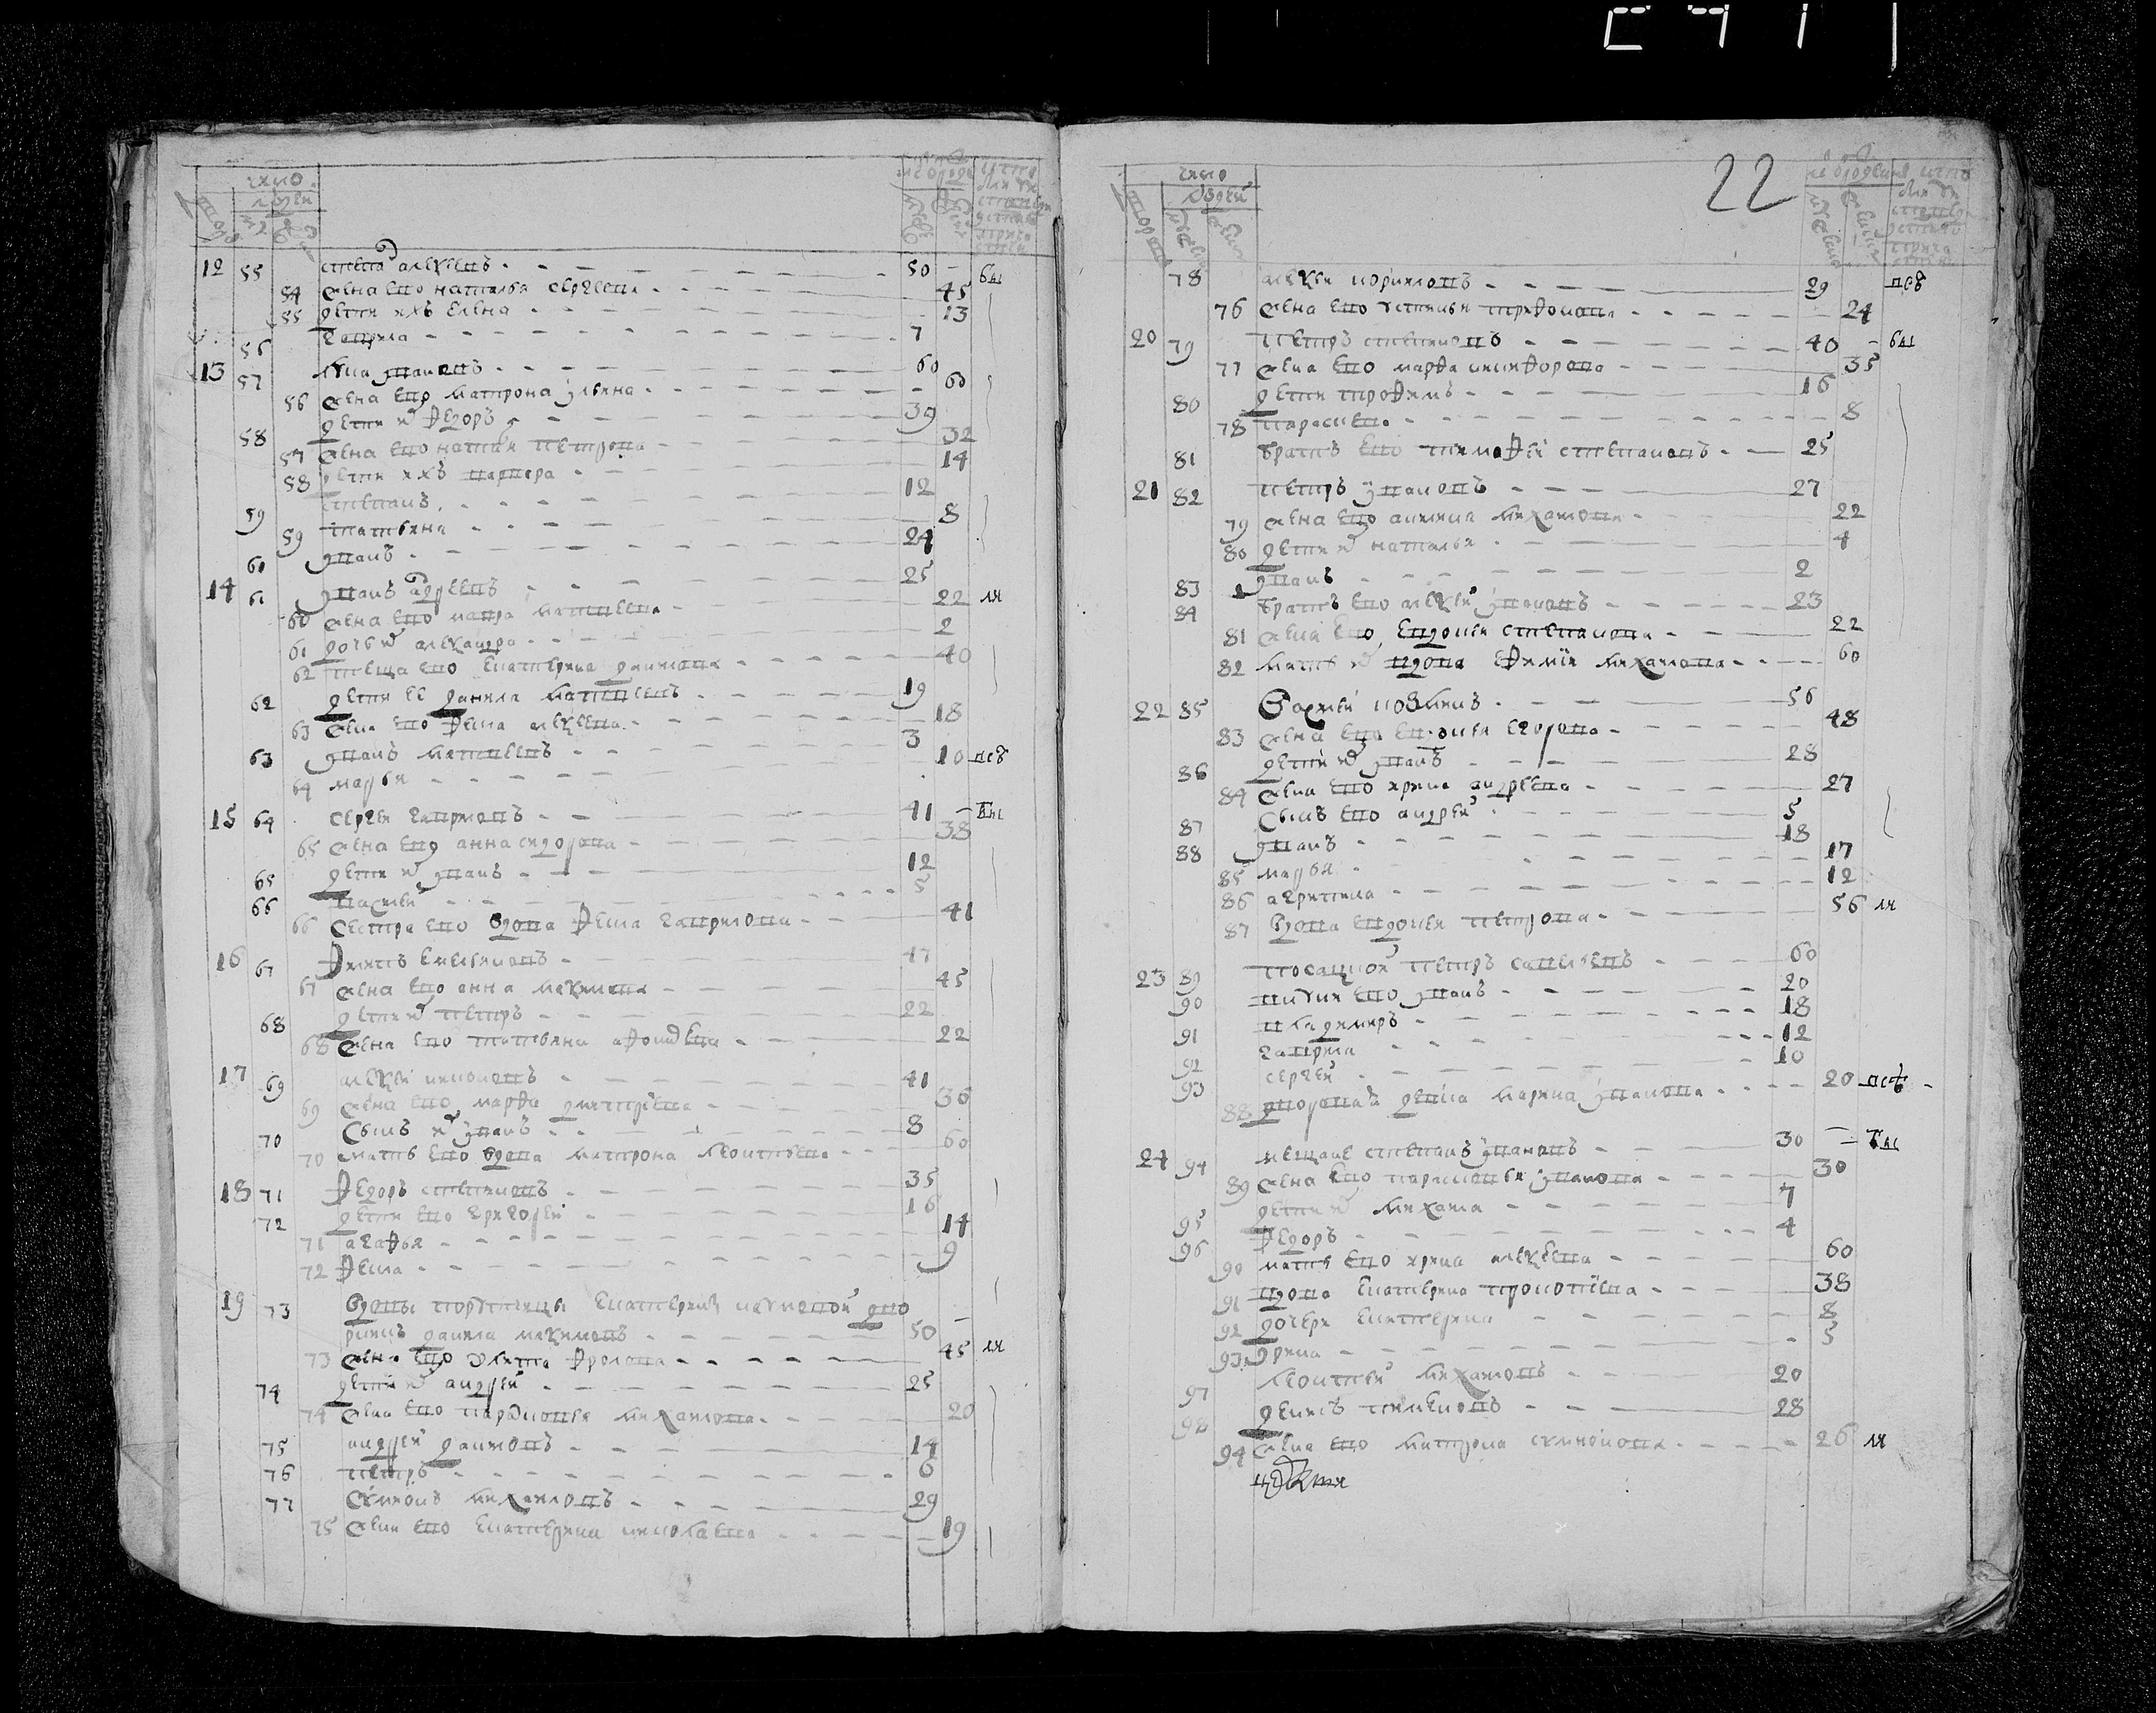 число
людей
12 55 Степанъ Алексеевъ 50 бы
54 жена ево Наталья Сергеева 45
55 дети ихъ Елена 13
56 Гаврила 7
13 57 Лука Ивановъ 60
56 жена ево Матрона Ильина 60
58 дети их Федоръ 39
57 жена ево Наталья Петрова 32
58 дети ихъ Варвара 14
59 Степанъ 12
59 Татьяна 8
60 Иванъ 24
14 61 Иванъ Андреевъ 25
60 жена ево Мавра Матвеева 22 ля
61 дочь их Александра 2
62 теща ево Екатерина Данилова 40
62 дети ее Данила Матвеевъ 19
63 жена ево Фекла Алексеева 18
63 Иванъ Матвеевъ 3
64 Марья 10 все
15 64 Сергей Гавриловъ 41 бы
65 жена ево Анна Сидорова 38
65 дети их Иванъ 12
66 Василей 5
66 сестра ево вдова Фекла Гаврилова 41
16 67 Филипъ Емельяновъ 47
67 жена ево Анна Максимова 45
68 дети их Петръ 22
68 жена ево Татьяна Афонасева 22
17 69 Алексей Никоновъ 41
69 жена ево Марфа Дмитриева 36
70 сынъ их Иванъ 8
70 мать ево вдова Матрона Леонтьева 60
18 71 Федоръ Степановъ 35
72 дети ево Григорей 16
71 Агафья 14
72 Фекла 9
19 73 Вдовы порутчицы Екатерины Наумовой дво
ровой Данила Максимовъ 50
73 жена ево Улита Фролова 45 ля
74 дети их Андрей 25
74 жена ево Парасковья Михайлова 20
75 Андрей Даниловъ 14
76 Петръ 6
77 Семионъ Михайловъ 29
75 жена ево Екатерина Николаева 19
22
число
людей
78 Алексей Кириловъ 29 все
76 жена ево Устинья Трифонова 24
20 79 Петръ Степановъ 40 бы
77 жена ево Марфа Никифорова 35
80 дети Трофимъ 16
78 Парасковья 8
81 братъ ево Тимофей Степановъ 25
21 82 Петръ Ивановъ 27
79 жена ево Акилина Михайлова 22
80 дети их Наталья 4
83 Иванъ 2
84 братъ ево Алексей Ивановъ 23
81 жена ево Евдокия Степанова 22
82 мать их вдова Ефимия Михайлова 60
22 85 Козминъ 56
83 жена ево Евдокия Егорова 48
86 дети их Иванъ 28
84 жена ево Ирина Андреева 27
87 сынъ ево Андрей 5
88 Иванъ 18
85 Марья 17
86 Агрипина 12
87 Вдова Евдокия Петрова 56 ля
23 89 Посацкой Петръ Савельевъ 60
90 внуки ево Иванъ 20
91 Владимиръ 18
92 Гаврила 12
93 Сергей 10
88 дворовая девка Марина Иванова 20 все
24 94 мещане Степанъ Ивановъ 30 бы
89 жена ево Парасковья Иванова 30
95 дети их Михаила 7
96 Федоръ 4
90 мать ево Ирина Алексеева 60
91 вдова Екатерина Прокопьева 38
92 дочери Екатерина 8
93 Ирина 5
97 Леонтей Михайловъ 20
98 Денисъ Тимофеевъ 28
94 жена ево Матрона Семионова 26 ля